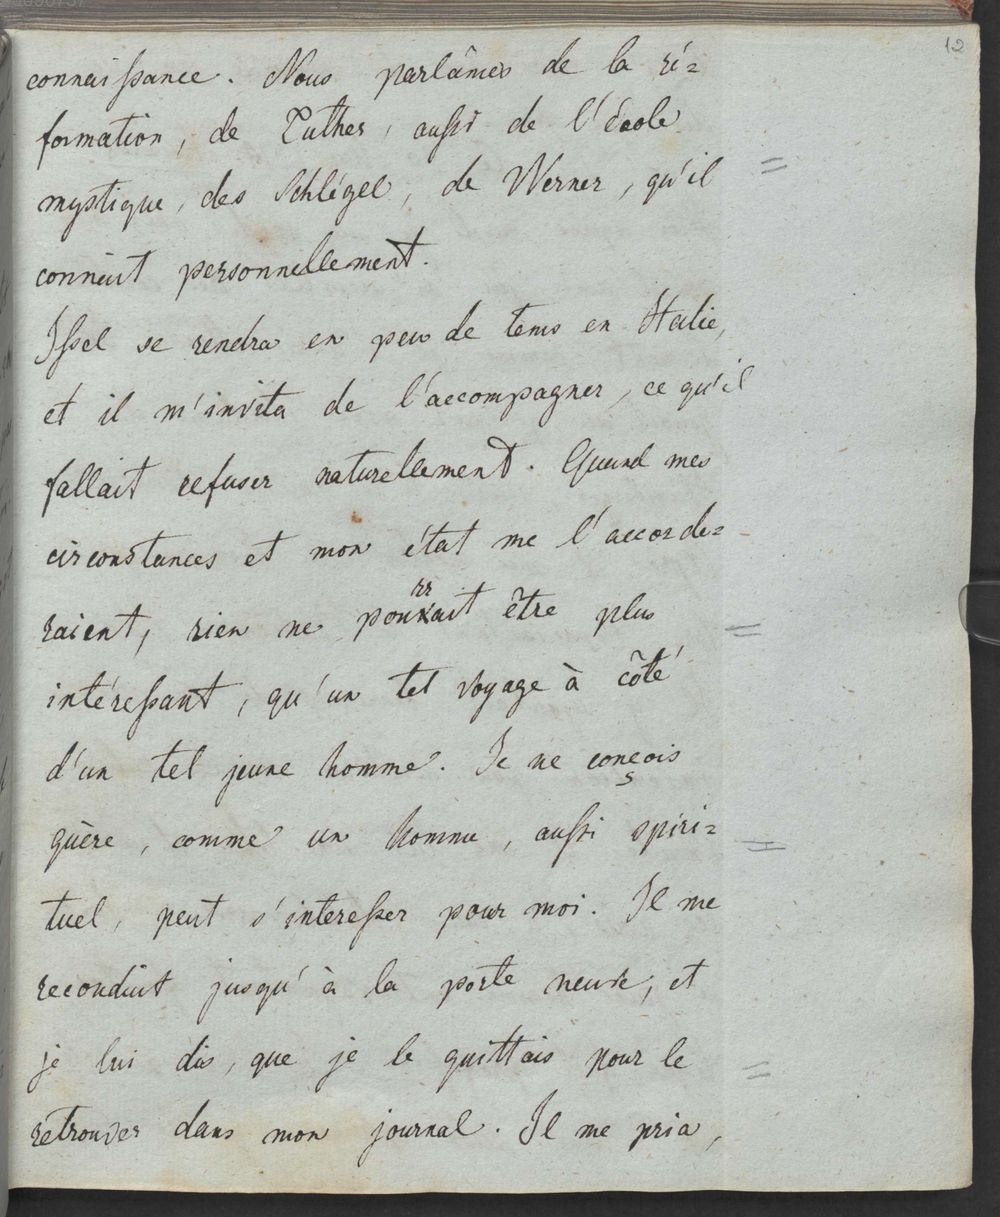 12
connaissance. Nous parlâmes de la ré=
formation, de Luther, aussi de l'école
mystique, des Schlégel, de Werner, qu'il
connait personnellement.
Issel se rendra en peu de tems en Italie,
et il m'invita de l'accompagner, ce qu'il
fallait refuser naturellement. Quand mes
circonstances et mon état me l'accorde=
raient, rien ne pourrait être plus
intéressant, qu'un tel voyage à côté
d'un tel jeune homme. Je ne conçois
guère, comme un homme, aussi spiri=
tuel, peut s'interesser pour moi. Il me
reconduit jusqu'à la porte neuve, et
je lui dis, que je le quittais pour le
retrouver dans mon journal. Il me pria,